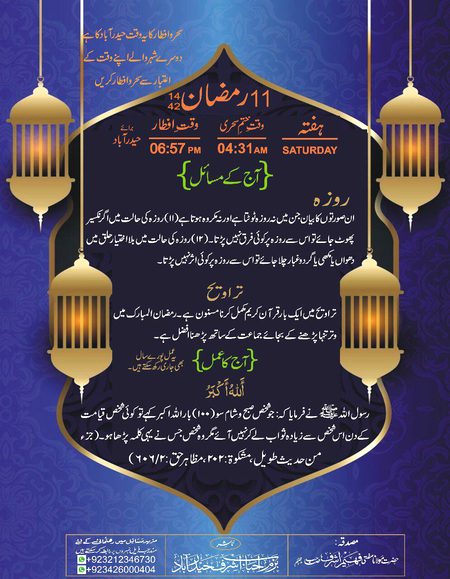 سحر و افطار کا یہ وقت حیدرآباد کا ہے
دوسرے شہر والے اپنے وقت کے
اعتبار سے سحر و افطار کریں
11 رمضان 1442
ہفتہ
SATURDAY
وقت ختم سحری
04:31 AM
وقت افطار
06:57 PM
برائے حیدرآباد
{آج کے مسائل}
روزہ
ان صورتوں کا بیان جن میں نہ روزہ ٹوٹتا ہے اور نہ مکروہ ہوتا ہے (۱۱) روزہ کی حالت میں اگر نکسیر
پھوٹ جائے تو اس سے روزہ پر کوئی فرق نہیں پڑتا۔ (۱۲) روزہ کی حالت میں بلا اختیار حلق میں
دھواں یا مکھی یا گرد و غبار چلا جائے تو اس سے روزہ پر کوئی اثر نہیں پڑتا۔
تراویح
تراویح میں ایک بار قرآن کریم مکمل کرنا مسنون ہے۔ رمضان المبارک میں
وتر تنہا پڑھنے کے بجائے جماعت کے ساتھ پڑھنا افضل ہے۔
{آج کا عمل}
یہ عمل پورے سال
بھی جاری رکھ سکتے ہیں۔
اَللّٰهُ اَكْبَرُ
رسول اللہ ﷺ نے فرمایا کہ: جو شخص صبح و شام سو (۱۰۰) بار اللہ اکبر کہے تو کوئی شخص قیامت
کے دن اس شخص سے زیادہ ثواب لے کر نہیں آئے گا مگر وہ شخص جس نے یہی کلمہ پڑھا ہو۔ (جزء
من حدیث طویل، مشکوٰۃ: ۲۰۲، مظاہر حق: ۲/۶۰۶)
مصدقہ:
حضرت مولانا مفتی
ناشر
بزم احیاء اشرف حیدرآباد
+923212346730
+923426000404